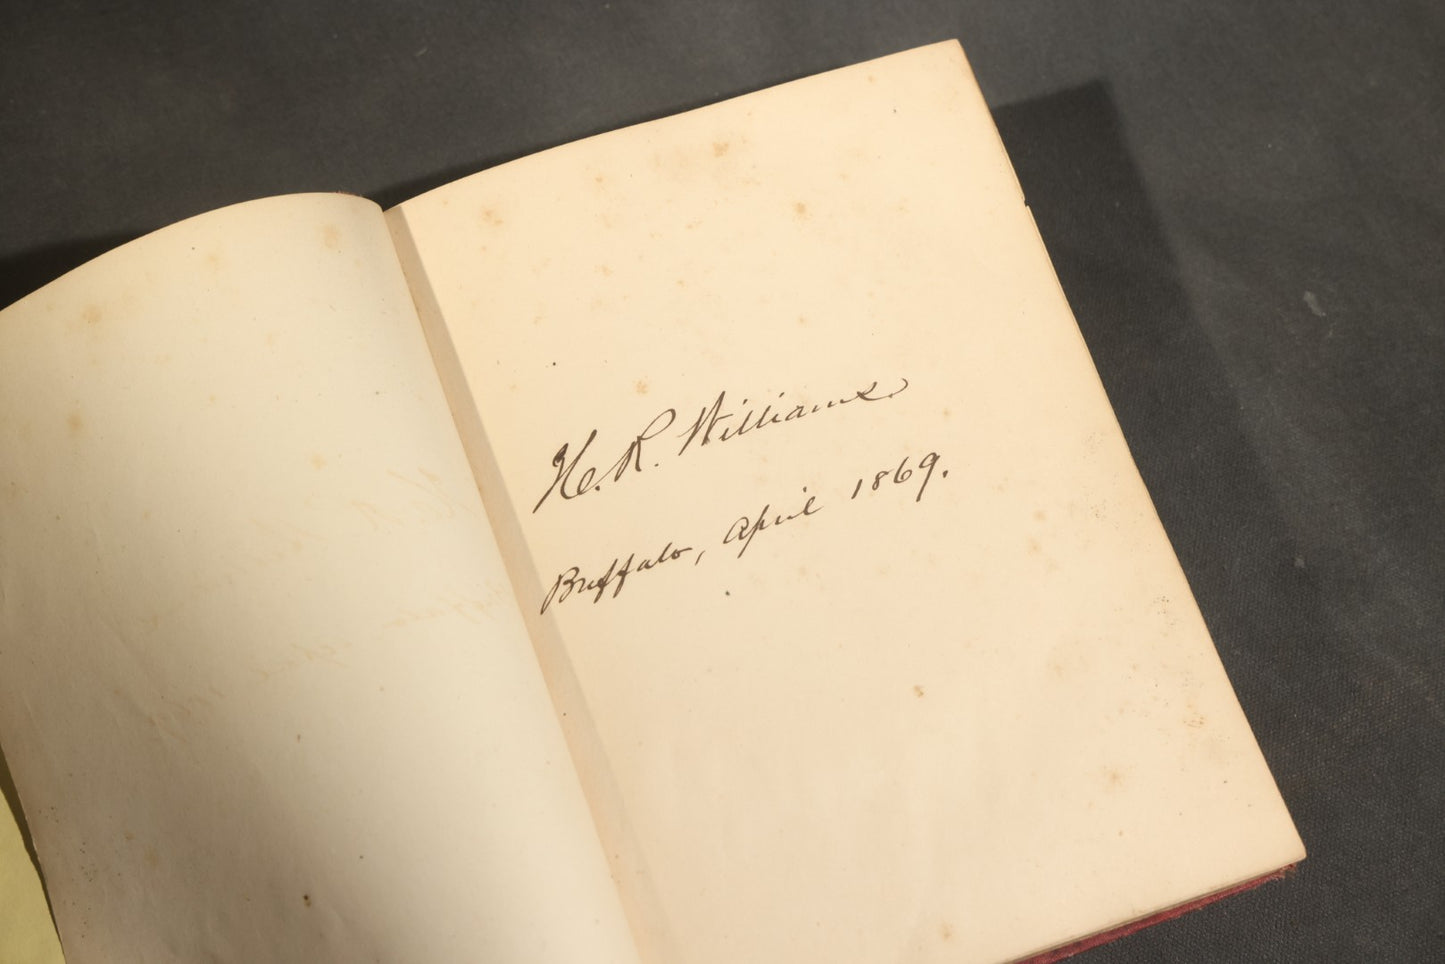 H. R. Williams.
Buffalo, April 1869.